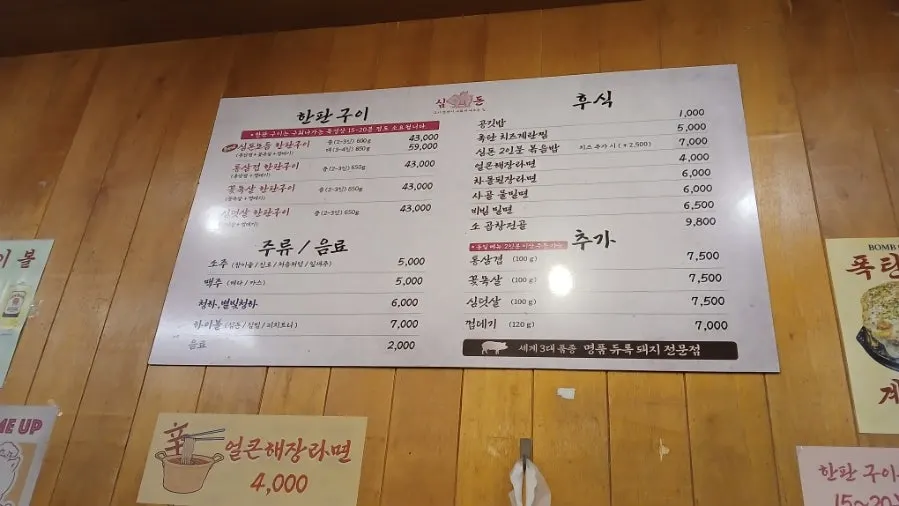 심돈
한판구이
• 한판 구이는 구워나가는 특성상 15-20분 정도 소요됩니다
심돈모듬 한판구이 중 (2-3인) 600g 43,000
대 (3-4인) 850g 59,000
통삼겹 한판구이 중 (2-3인) 650g 43,000
꽃목살 한판구이 중 (2-3인) 650g 43,000
한판구이 중 (2-3인) 650g 43,000
주류 / 음료
소주 5,000
맥주 (테라 / 카스) 5,000
청하, 별빛청하 6,000
하이볼 7,000
음료 2,000
후식
공깃밥 1,000
폭탄 치즈계란찜 5,000
심돈 2인분 볶음밥 치즈 추가 시 (+ 2,500) 7,000
얼큰해장라면 4,000
차돌된장라면 6,000
사골 물밀면 6,000
비빔 밀면 6,500
소 곱창전골 9,800
추가
통삼겹 (100 g) 7,500
꽃목살 (100 g) 7,500
실덧살 (100 g) 7,500
껍데기 (120 g) 7,000
세계 3대 품종 명품 듀록 돼지 전문점
이 볼
ME UP
얼큰해장라면
4,000
BOMB
폭탄
계
한판 구이
15~20